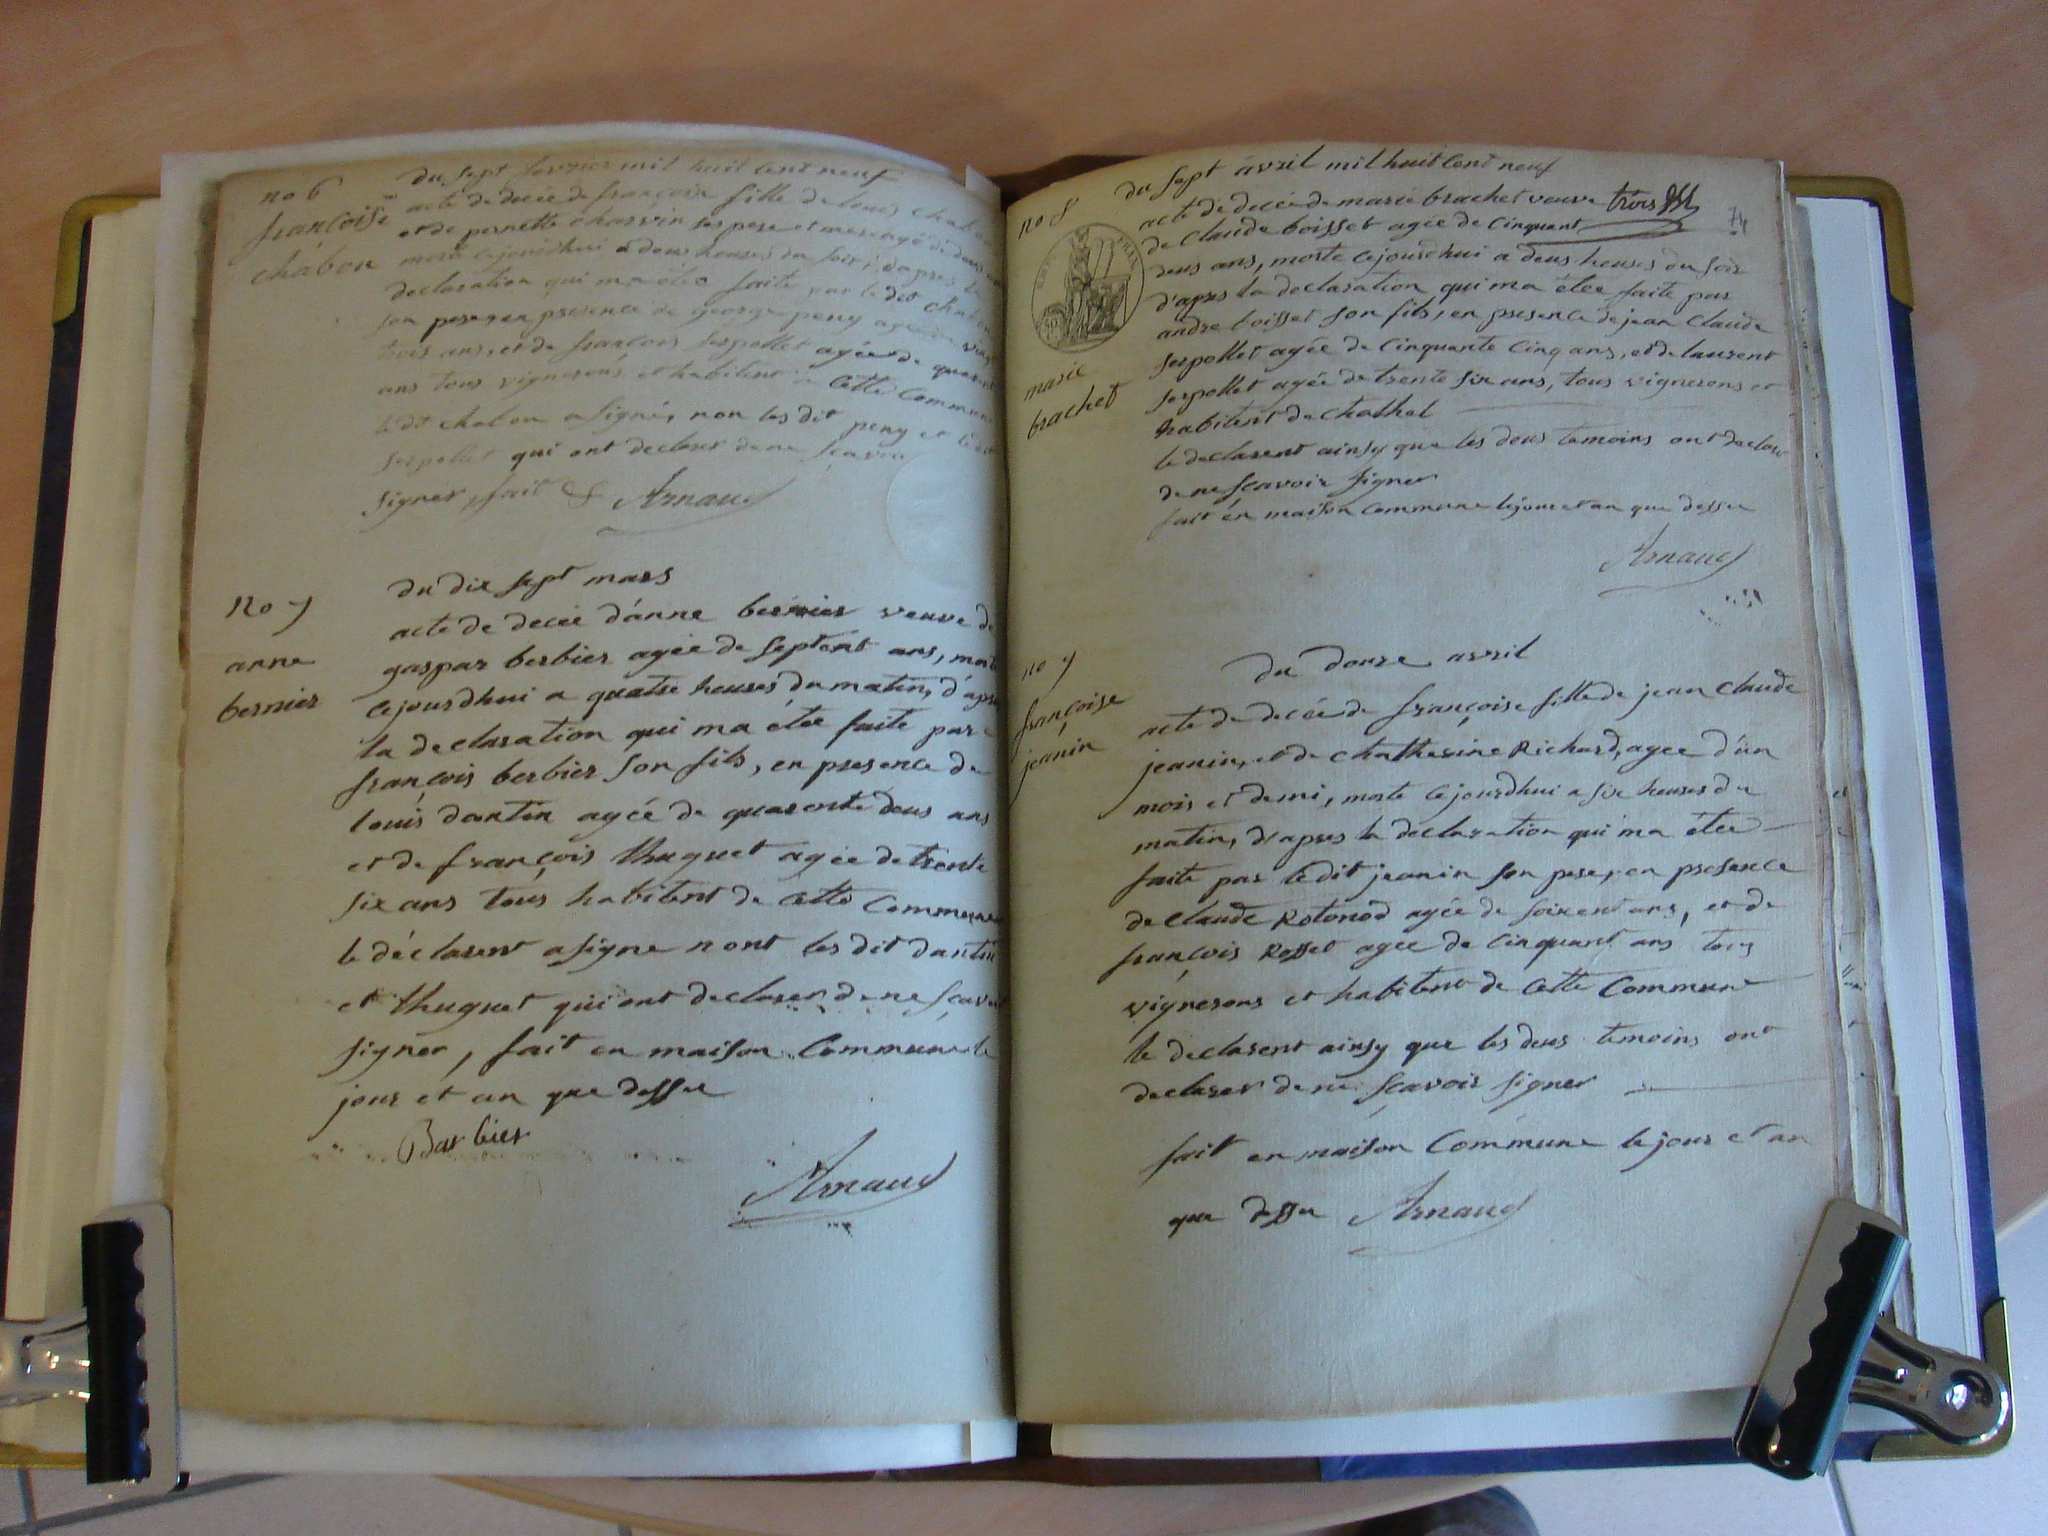 no 6
françoise
chabon
du sept fevrier mil huit cent neuf
acte de decée de françoise fille de louis chabon
et de pernette charvin ses pere et mere agé de deux
morte cejourdhui a deus heures du soir, d'apres la
declaration qui ma étée faite par le dit chabon
son pere, en présence de george peny agée de vingt
trois ans, et de françois serpollet agée de quarent
ans tous vignerons et habitent de cette Commune
le dt chabon a signé, non les dit peny et ledit
serpollet qui ont declarer de ne sçavoir
signer, fait & Arnaud
no 7
anne
bernier
du dix sept mars
acte de decée d'anne bernier veuve de
gaspar berbier agée de septent ans, morte
cejourdhui a quatre heures du matin, d'apres
la declaration qui ma étée faite par
françois berbier son fils, en presence de
louis dantin agée de quarente deus ans
et de françois thuguet agée de trente
six ans tous habitent de cette Commune
le déclarent a signe n ont les dit dantin
et thuguet qui ont declarer de ne sçavoir
signer, fait en maison Commune le
jour et an que dessu
Barbier
Arnaud
no 8
marie
brachet
74
du sept avril mil huit cent neuf
acte de decée de marie brachet veuve trois
de Claude boisset agée de Cinquant
deus ans, morte cejourdhui a deus heures du soir
d'apres la declaration qui ma étée faite par
andre boisset son fils, en presence de jean Claude
serpollet agée de Cinquante Cinq ans, et de laurent
serpollet agée de trente six ans, tous vignerons et
habitent de
le declarent ainsy que les deus temoins ont declarer
de ne sçavoir signer
fait en maison Commune le jour et an que dessu
Arnaud
no 9
françoise
jeanin
du douze avril
acte de decée de françoise fille de jean Claude
jeanin, et de Chatherine Richard, agee d'un
mois et demi, morte cejourdhui a six heures du
matin, d'apres la declaration qui ma étée
faite par ledit jeanin son pere, en presence
de Claude Rotonod agée de soixent ans, et de
françois Rosset agee de Cinquant ans tous
vignerons et habitent de Cette Commune
le declarent ainsy que les deus temoins ont
declarer de ne sçavoir signer
fait en maison Commune le jour et an
que dessu Arnaud